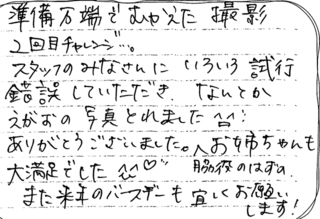 準備万端でむかえた撮影
2回目チャレンジ…。
スタッフのみなさんにいろいろ試行
錯誤していただき、なんとか
えがおの写真とれました
ありがとうございました。お姉ちゃんも
大満足でした♡ 脇役のはずの、
また来年のバースデーも宜しくお願い
します!